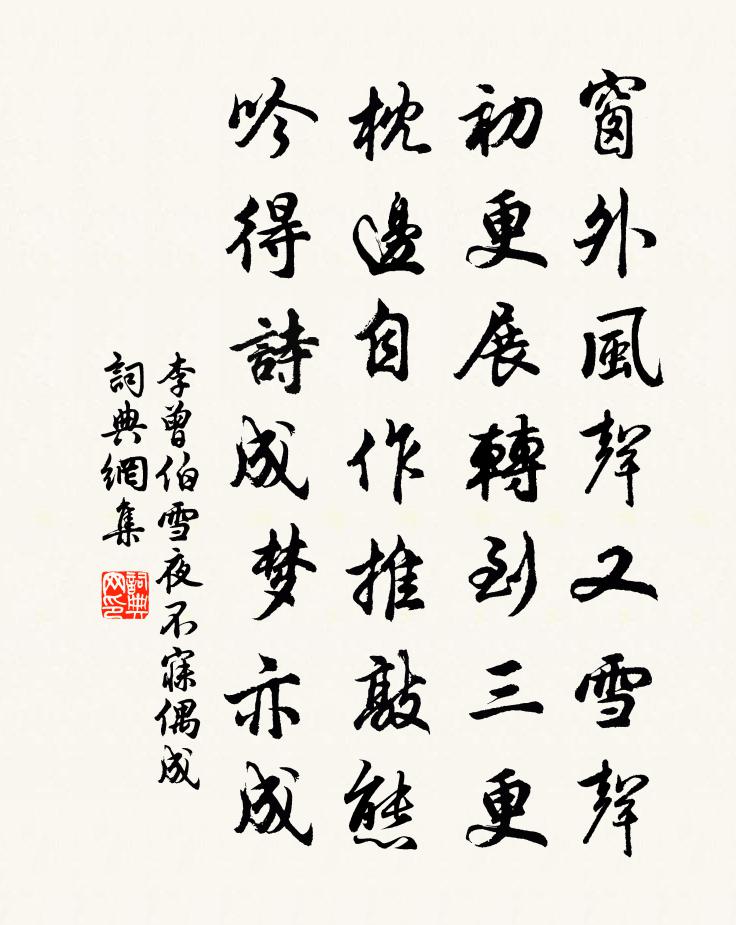 窗外風聲又雪聲
初更展轉到三更
枕邊自作推敲態
吟得詩成梦亦成
李曾伯雪夜不寐偶成
詞典網集
詞典网印